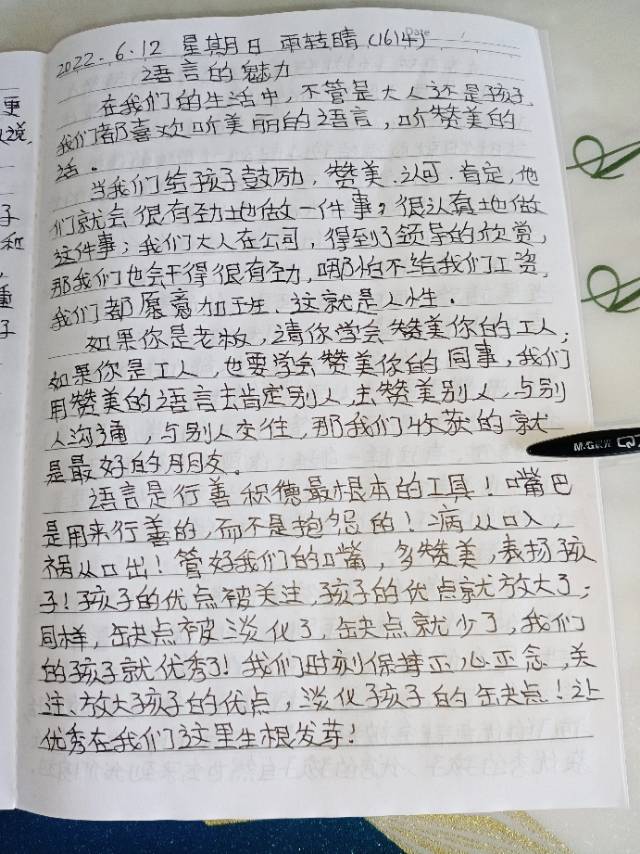 2022.6.12 星期日 雨转晴(1614)
Date
语言的魅力
在我们的生活中，不管是大人还是孩子，
我们都喜欢听美丽的语言，听赞美的
话。
当我们给孩子鼓励，赞美.认可.肯定，他
们就会很有劲地做一件事，很认真地做
这件事；我们大人在公司，得到了领导的欣赏，
那我们也会干得很有劲，哪怕不给我们工资，
我们都愿意加班、这就是人性。
如果你是老板，请你学会赞美你的工人；
如果你是工人，也要学会赞美你的同事，我们
用赞美的语言去肯定别人，去赞美别人，与别
人沟通，与别人交往，那我们收获的就
是最好的朋友。
语言是行善积德最根本的工具！嘴巴
是用来行善的，而不是抱怨的！病从口入，
祸从口出！管好我们的嘴，多赞美，表扬孩
子！孩子的优点被关注，孩子的优点就放大了；
同样，缺点被淡化了，缺点就少了，我们
的孩子就优秀了！我们时刻保持正心正念，关
注、放大孩子的优点，淡化孩子的缺点！让
优秀在我们这里生根发芽！
更
说，
子
和
重
子
M&G